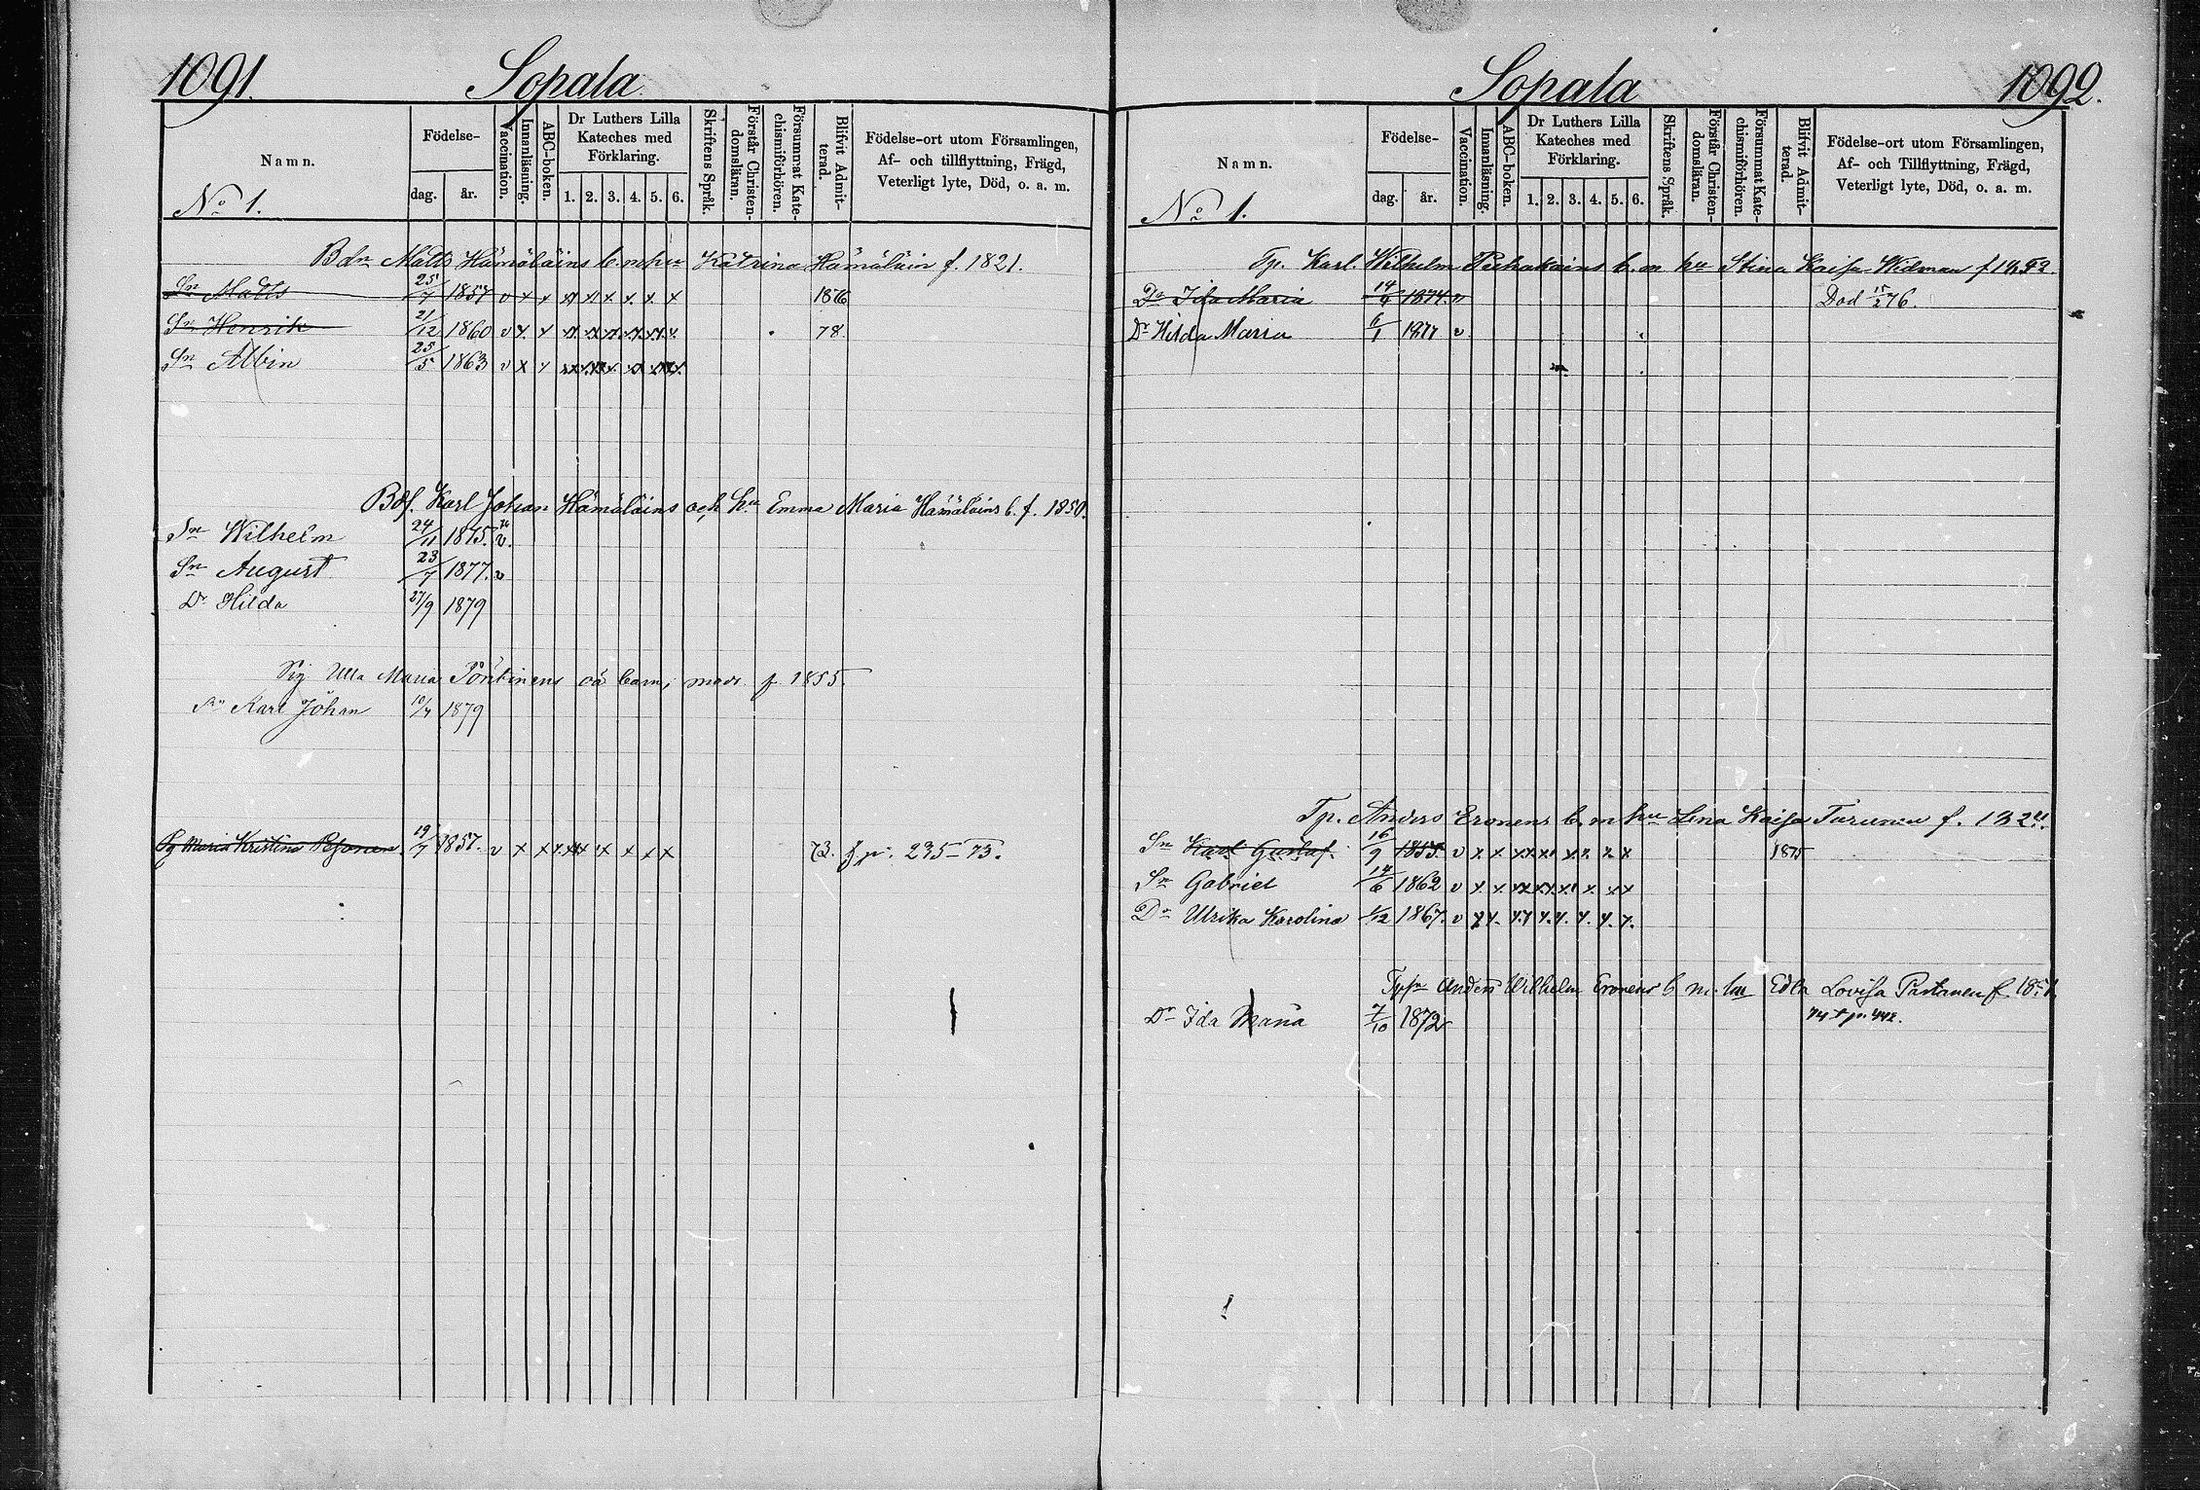 1091.
Sopala
Namn.
No 1.
Födelse-
dag.
år.
Vaccination.
Innanläsning.
ABC-boken.
Dr Luthers Lilla
Kateches med
Förklaring.
1. 2. 3. 4. 5. 6.
Skriftens Språk.
Förstår Christen-
domsläran.
Försummat Kate-
chismiförhören.
Blifvit Admit-
terad.
Födelse-ort utom Församlingen,
Af- och tillflyttning, Frägd,
Veterligt lyte, Död, o. a. m.
Bdn Matts Hämäläins b. m hu Katrina Hämäläin f. 1821.
Sn Matts 25/7 1857 v x x x x x x x x 1876
Sn Henrik 21/12 1860 v x x x x x x x x 78.
Sn Albin 25/5 1863 v x x x x x x x x
Bdf. Karl Johan Hämäläins och hu Emma Maria Hämäläins b. f. 1850.
Sn Wilhelm 24/11 1875. v.
Sn August 23/7 1877. v
Dr Hilda 27/9 1879
Pig Ulla Maria oä barn; modr f. 1855.
Sn Karl Johan 10/7 1879
Pg Maria Kristina 19/7 1857. v x x x x x x x x 73. f. p. 235–73.
Sopala
1092.
Namn.
No 1.
Födelse-
dag.
år.
Vaccination.
Innanläsning.
ABC-boken.
Dr Luthers Lilla
Kateches med
Förklaring.
1. 2. 3. 4. 5. 6.
Skriftens Språk.
Förstår Christen-
domsläran.
Försummat Kate-
chismiförhören.
Blifvit Admit-
terad.
Födelse-ort utom Församlingen,
Af- och Tillflyttning, Frägd,
Veterligt lyte, Död, o. a. m.
Tp. Karl Wilhelm b. m hu Stina Kaisa Widman f
Dr Ida Maria 14/9 1874. v Död 15/2 76.
Dr Hilda Maria 6/1 1877 v
Tp. Anders Eronens b. m hu Lena Kaisa Turunen f. 1824.
Sn Karl Gustaf. 16/9 1855. v x x x x x x x x 1875
Sn Gabriel 14/6 1862 v x x x x x x x x
Dr Ulrika Karolina 1/12 1867. v x x x x x x x x
Anders Wilhelm Eronens b m. hu Edla Lovisa Partanen f.
Dr Ida Maria 7/10 1872 74 t p. 442.